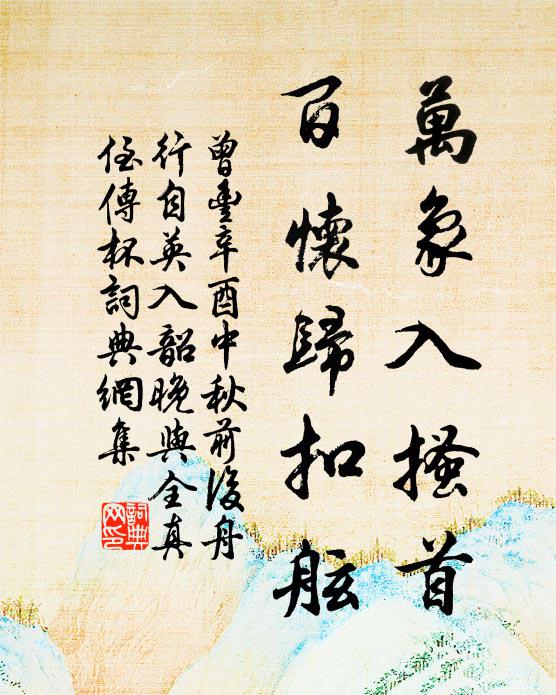 萬象入搔首
百懷歸扣舷
曾豐辛酉中秋前後舟
行自英入韶晚與全真
侄傳杯詞典網集
詞典
网印